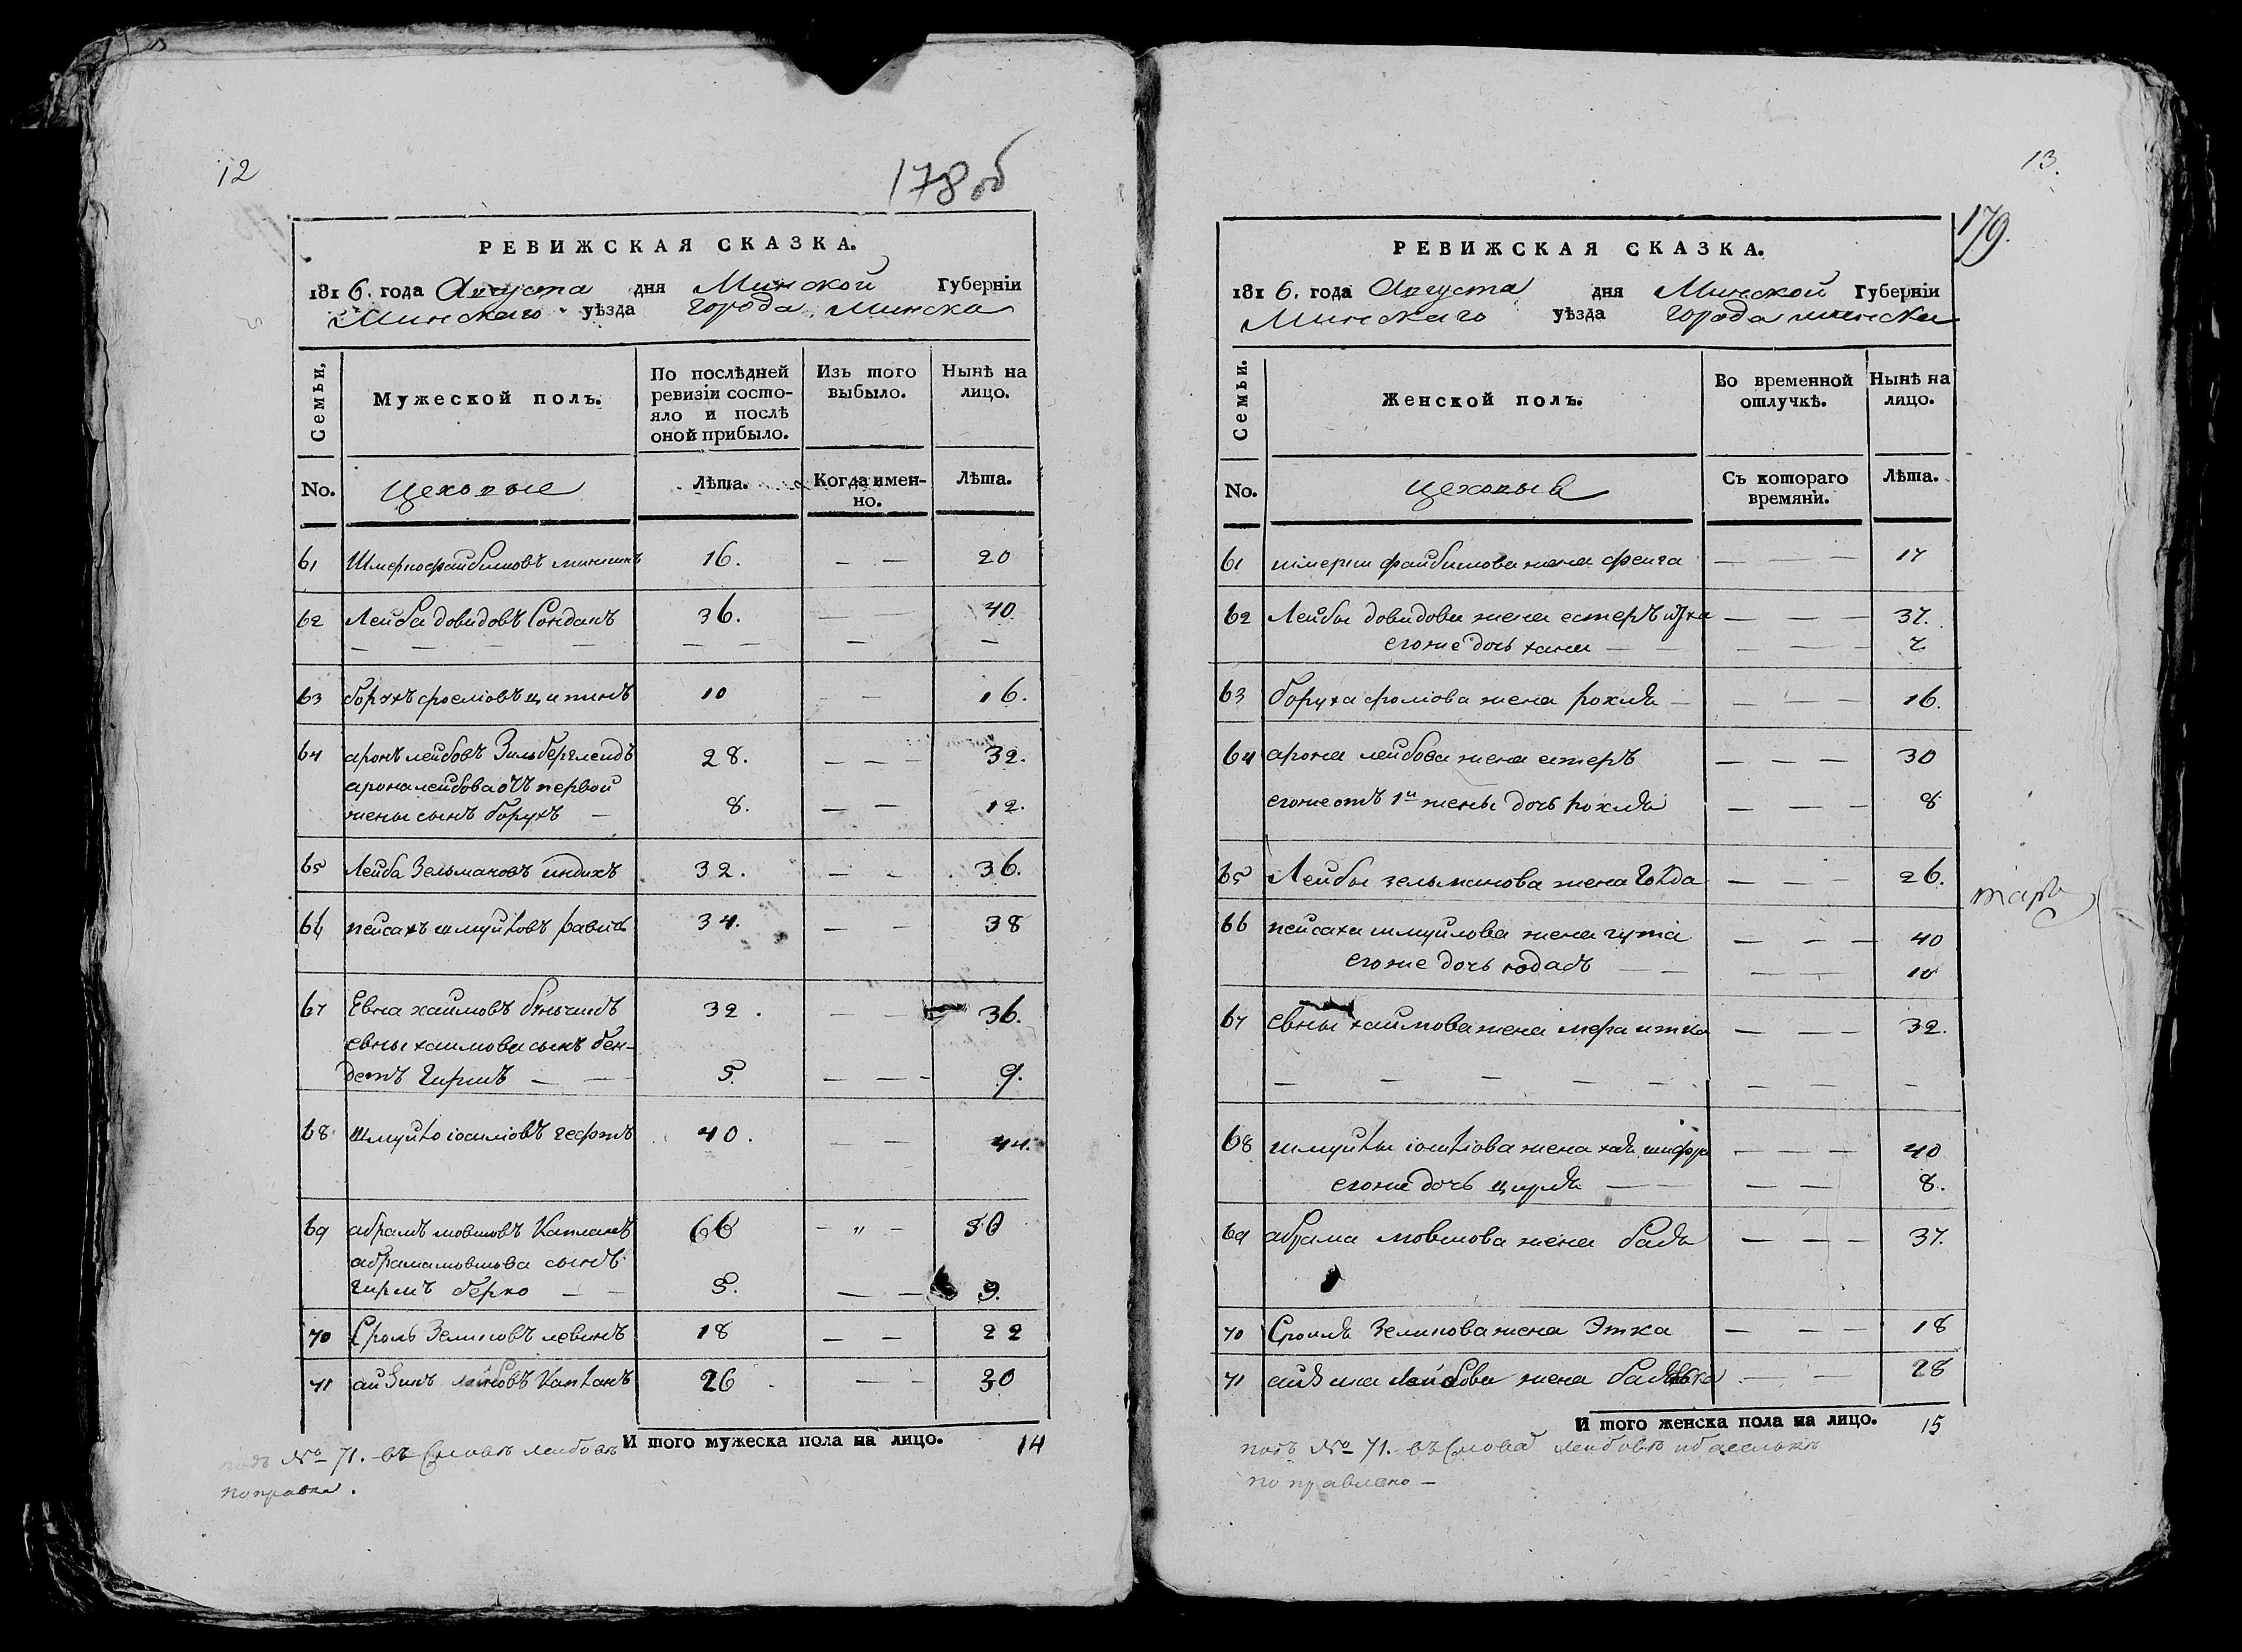 12
178 об
РЕВИЖСКАЯ СКАЗКА.
1816. года Августа дня Минской Губерніи
Минскаго уѣзда города Минска
Семьи,
Мужеской полъ.
По послѣдней ревизіи состо-
яло и послѣ
оной прибыло.
Изъ того выбыло.
Нынѣ на лицо.
No.
цеховые
Лѣта.
Когда имен-
но.
Лѣта.
61 Шмерко файбишовъ 16. — — 20
62 Лейба довидовъ Сонданъ 36. — — 40
— — — — — — — —
63 борухъ фроимовъ цитинъ 10 — — 16.
64 аронъ лейбовъ Зильберглейдъ 28. — — — 32.
арона лейбова отъ первой
жены сынъ борухъ — 8. — — 12.
65 Лейба Зельмановъ индихъ 32. — — 36.
66 пейсахъ шмуйловъ равичъ 34. — — 38
67 Евна хаимовъ 32. — — 36.
евны хаимова сынъ бен-
детъ гиршъ — — 5. — — — 9.
68 шмуйло гефтъ 40. — — 44.
69 абрамъ мовшовъ Капланъ 66 — „ — 50
абрама мовшова сынъ
гиршъ берко — — 5. — — 9.
70 Сроль Зеликовъ левинъ 18 — — 22
71 айзикъ лейбовъ Капланъ 26 — — 30
И того мужеска пола на лицо. 14
подъ № 71. въ словѣ лейбовъ
поправка.
13.
179.
РЕВИЖСКАЯ СКАЗКА.
1816. года Августа дня Минской Губерніи
Минскаго уѣзда города минска
Семьи.
Женской полъ.
Во временной отлучкѣ.
Нынѣ на лицо.
No.
цеховыя
Съ котораго времяни.
Лѣта.
61 шмерки файбишова жена фейга — — — 17
62 Лейбы довидова жена естеръ итка — — — 37.
его же дочь хана — — — — — 7
63 боруха фроимова жена рохля — — — — 16.
64 арона лейбова жена естеръ — — — 30
его же отъ 1й жены дочь рохля — — — 8
65 Лейбы зельманова жена голда — — — 26.
66 пейсаха шмуйлова жена гута — — — 40
его же дочь — — — — 10
67 евны хаимова жена мера итка — — — 32.
— — — — — — — — —
68 шмуйлы жена хая шифра — — — 40
его же дочь цирля — — — — 8.
69 абрама мовшова жена бадя — — — 37.
70 Сроиля Зеликова жена Этка — — — 18
71 айзика лейбова жена — — 28
И того женска пола на лицо. 15
подъ № 71. въ слова лейбова
поправлено —